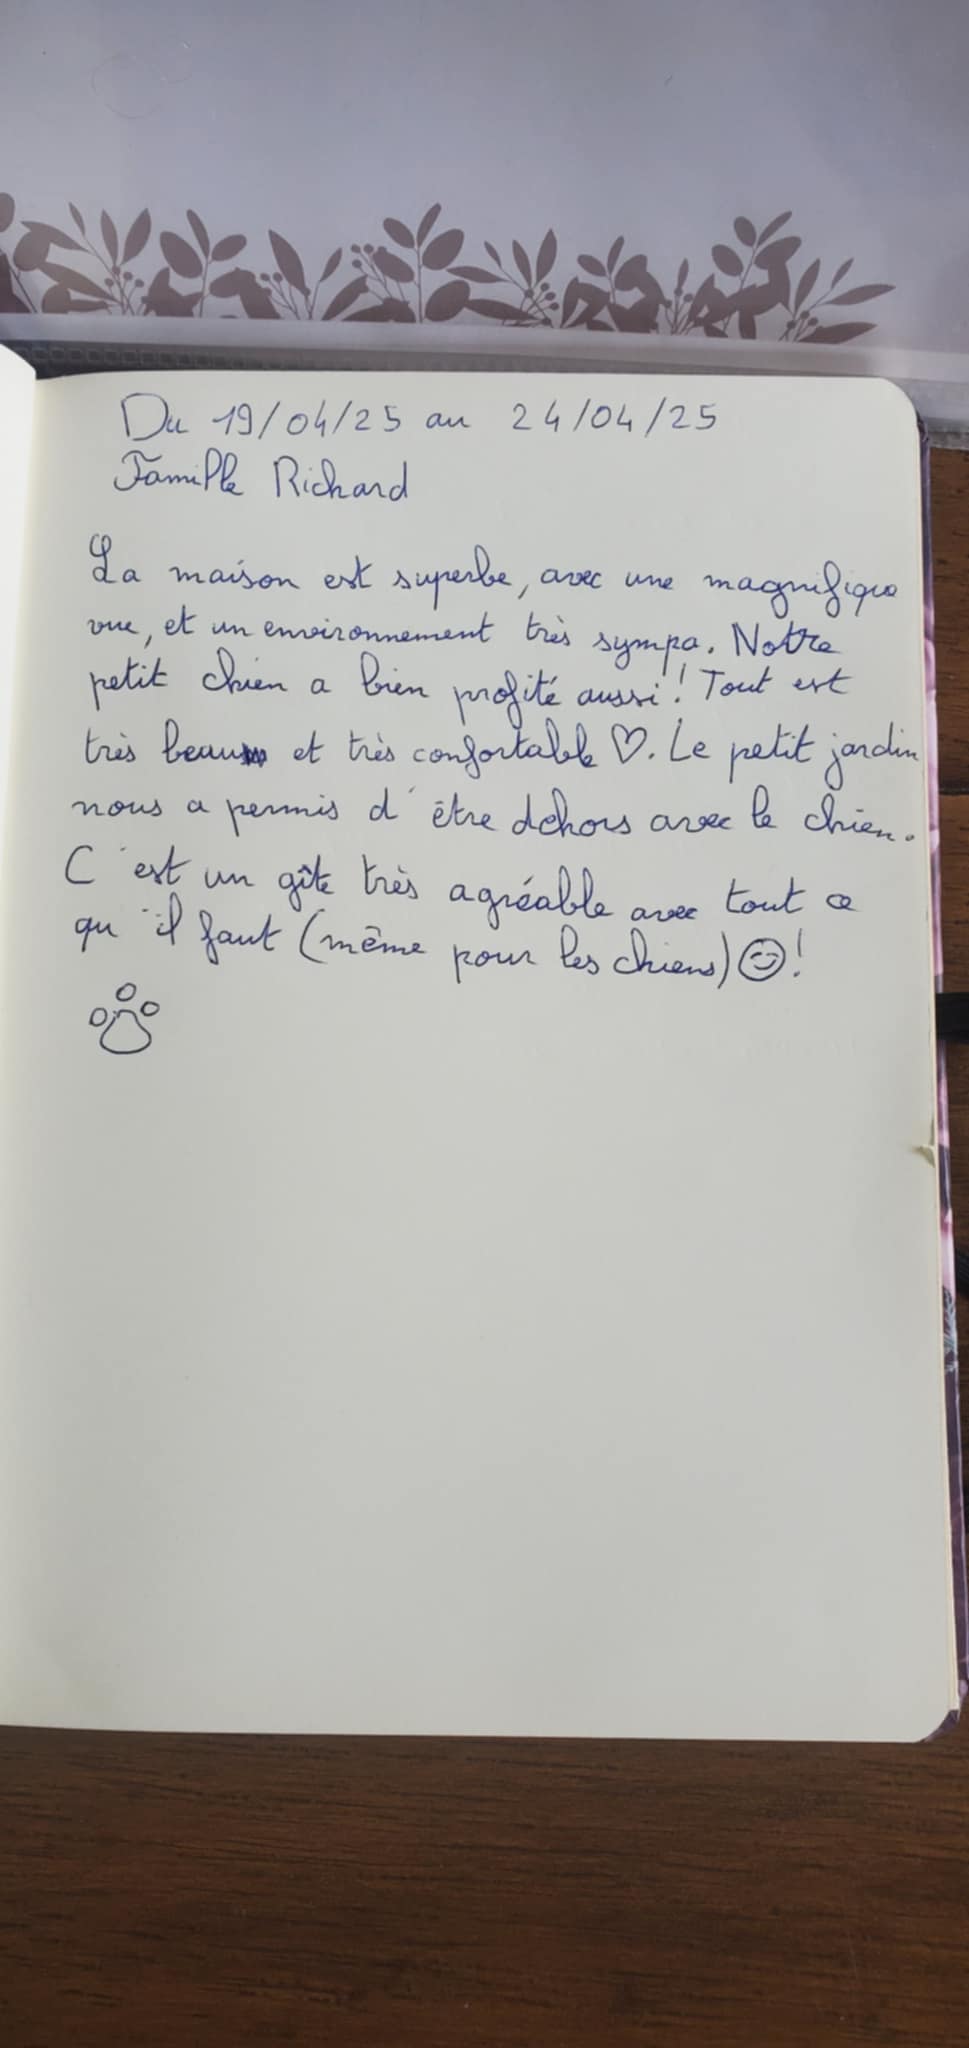 Du 19/04/25 au 24/04/25
Famille Richard
La maison est superbe, avec une magnifique
vue, et un environnement très sympa. Notre
petit chien a bien profité aussi! Tout est
très beau et très confortable ♡. Le petit jardin
nous a permis d'être dehors avec le chien.
C'est un gîte très agréable avec tout ce
qu'il faut (même pour les chiens) ☺!